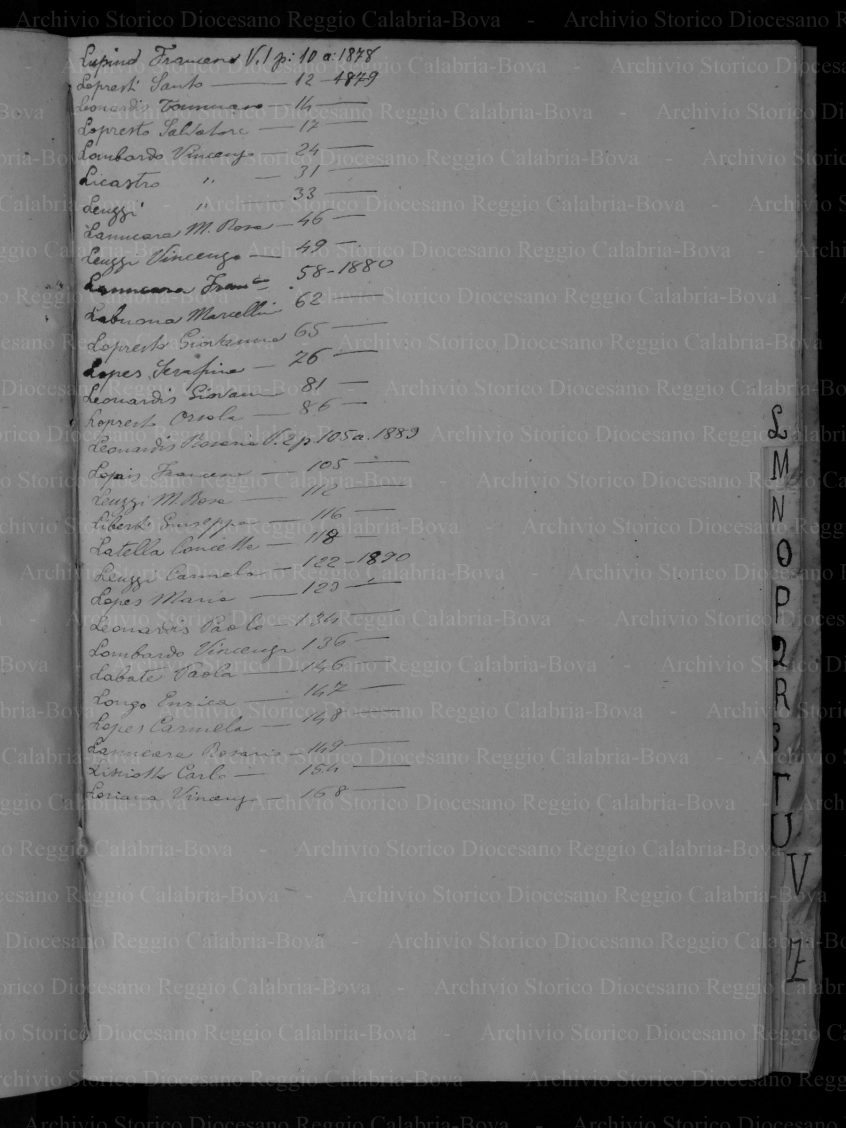 Lupino Francesco V. 1 p: 10 a: 1878
Lopresti Santo — 12 — 1879
Leonardis Tommaso — 14 —
Lopresto Salvatore — 17 —
Lombardo Vincenzo — 24 —
Licastro " — 31 —
Leuzzi " — 33 —
Lannucara M. Rosa — 46 —
Leuzzi Vincenzo — 49 —
Lannucara Fran.co 58 - 1880
Labuona Marcellin 62 —
Lopresti 65 —
Lopes Serafina — 76 —
Leonardis Giovan — 81 —
Lopresti Orsola — 86 —
Leonardis Rosaria V. 2 p 105 a. 1889
Lopis Francesco — 105 —
Leuzzi M. Rosa — 112 —
Liberti Giuseppe — 116 —
Latella Concetta — 118 —
Leuzzi Carmela — 122 - 1890
Lopes Maria — 123 —
Leonardis Paolo — 134 —
Lombardo Vincenzo 136 —
Labate Paola — 146 —
Longo Enrica — 147 —
Lopes Carmela — 148 —
Lannucara Rosario — 149 —
Carlo — 154 —
Vincenzo — 168 —
L
M
N
O
P
Q
R
S
T
U
V
Z
Archivio Storico Diocesano Reggio Calabria-Bova